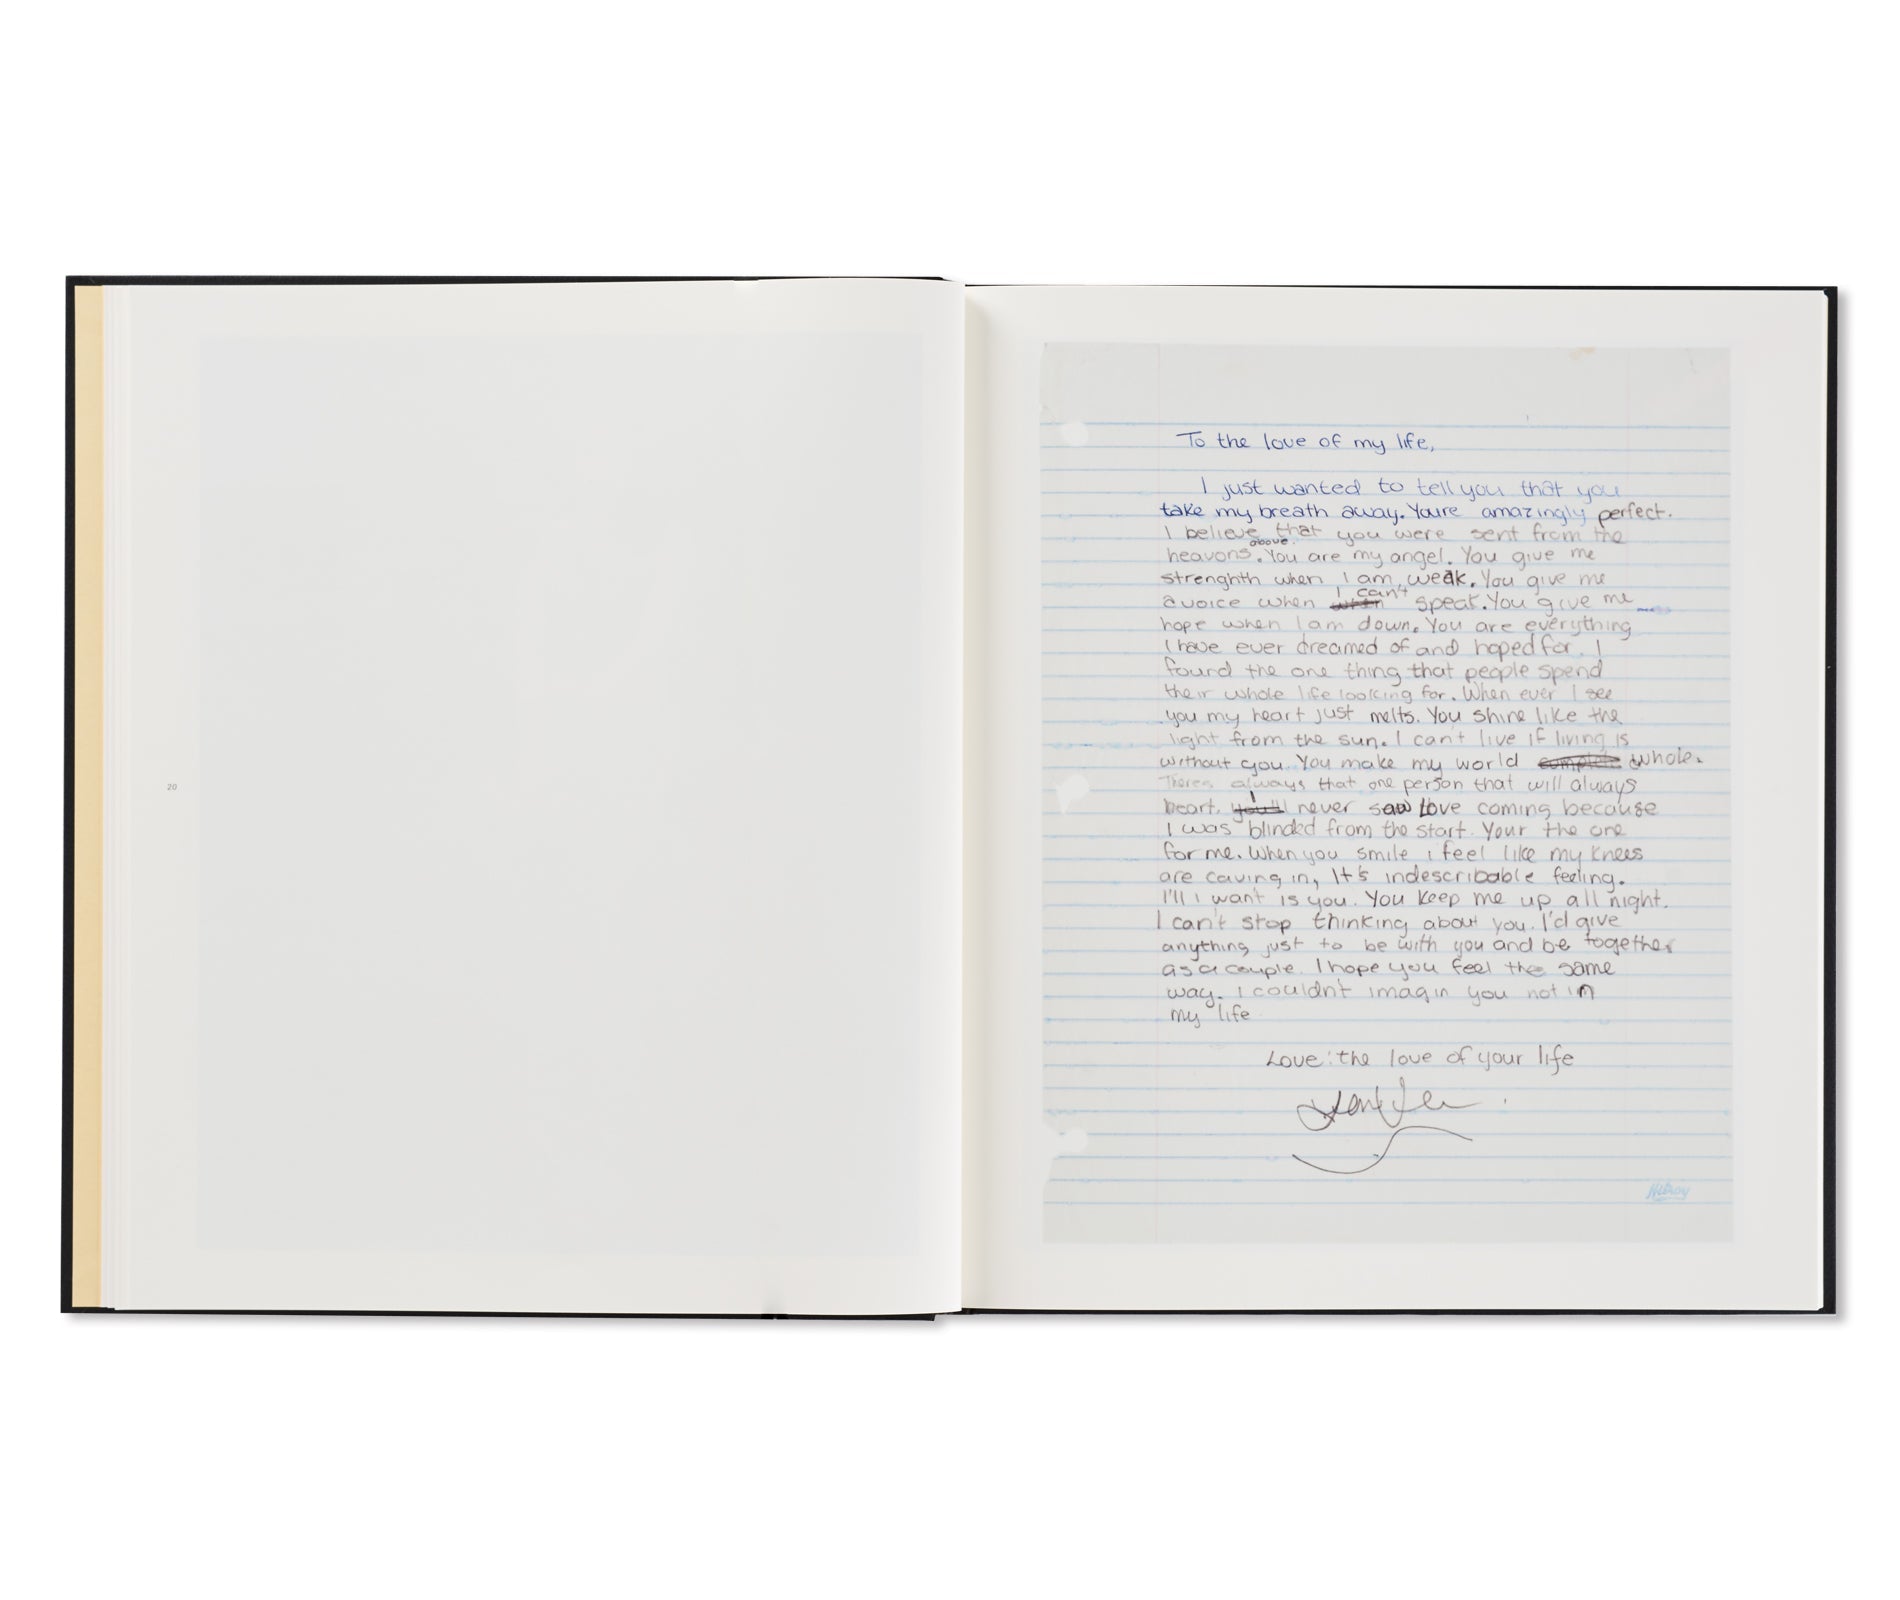 20
To the love of my life,
I just wanted to tell you that you
take my breath away. Youre amazingly perfect.
I believe that you were sent from the
heavons above. You are my angel. You give me
strenghth when I am weak. You give me
a voice when I can't speak. You give me
hope when I am down. You are everything
I have ever dreamed of and hoped for. I
found the one thing that people spend
their whole life looking for. When ever I see
you my heart just melts. You shine like the
light from the sun. I can't live if living is
without you. You make my world whole.
Theres always that one person that will always
heart. I never saw love coming because
I was blinded from the start. Your the one
for me. When you smile i feel like my knees
are caving in, It's indescribable feeling.
I'll i want is you. You keep me up all night.
I can't stop thinking about you. I'd give
anything just to be with you and be together
as a couple. I hope you feel the same
way. I couldn't imagin you not in
my life
Love: the love of your life
Hilroy